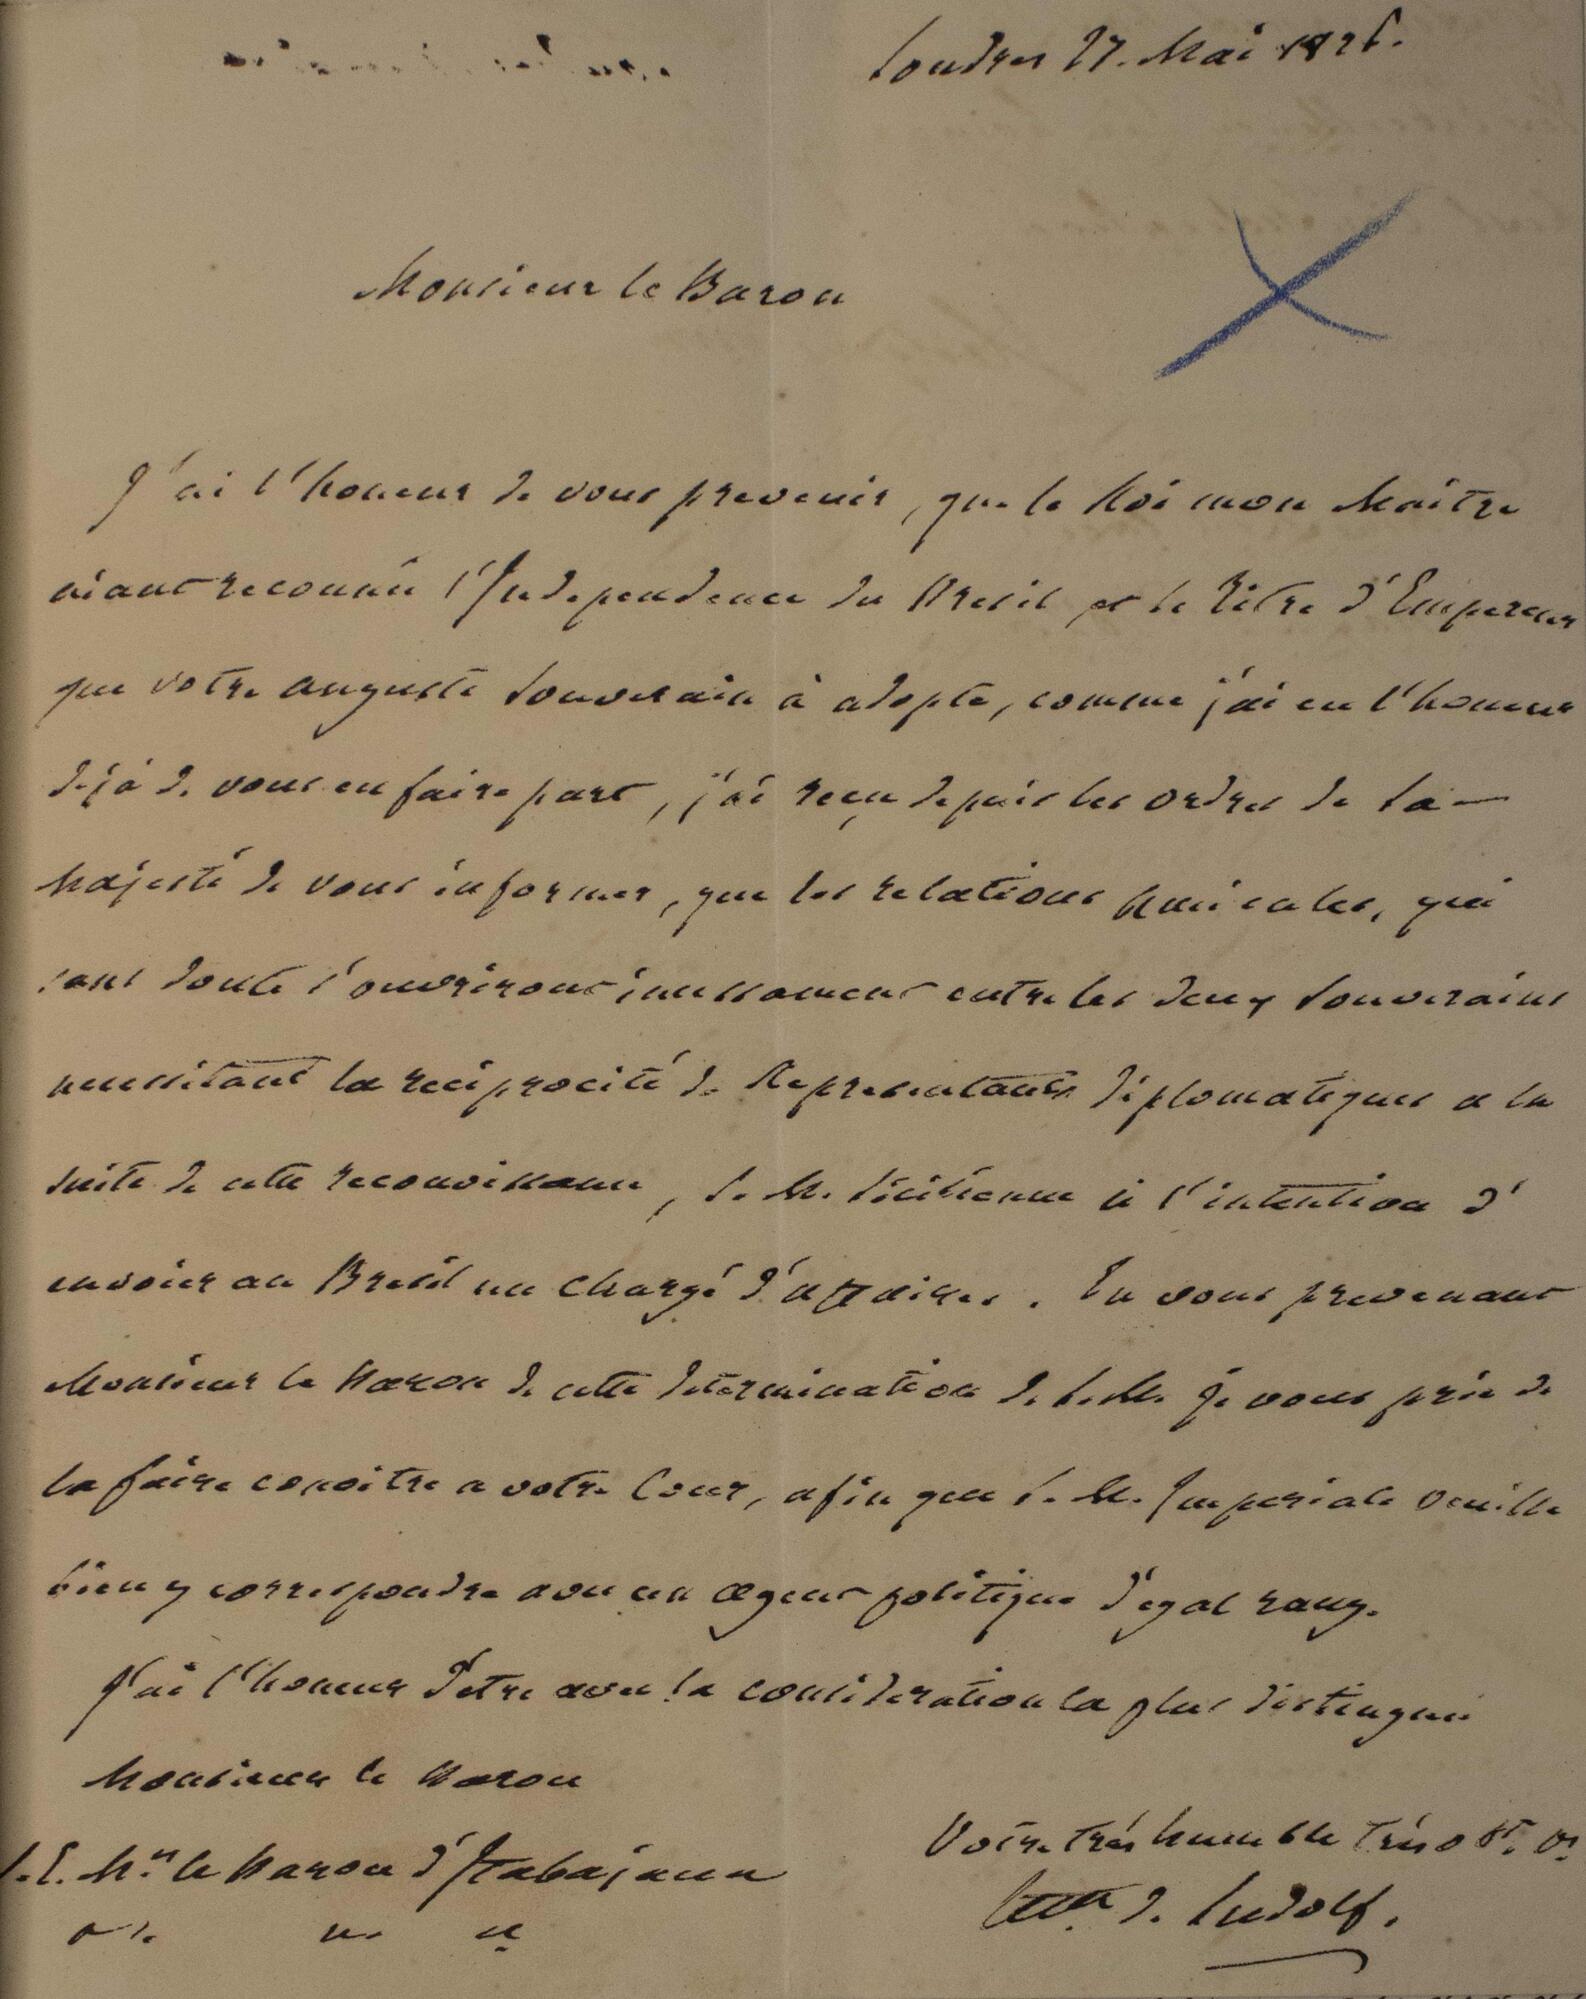 Londres 27. Mai 1826.
Monsieur le Baron
J'ai l'honeur de vous prevenir, que le Roi mon Maitre
aiant reconnu l'Independence du Bresil et le Titre d'Empereur
que votre auguste Souverain à adopté, comme j'ai eu l'honeur
dejà de vous en faire part, j'ai reçu depuis les ordres de Sa
Majesté de vous informer, que les relations Amicales, qui
sans doute s'ouvriront incessament entre les deux Souverains
necessitant la reciprocité de Representants diplomatiques a la
suite de cette reconoissance, S. M. Sicilienne à l'intention d'
envoier au Bresil un Chargé d'affaires. En vous prevenant
Monsieur le Baron de cette determination de S. M. je vous prie de
la faire conoitre a votre Cour, afin que S. M. Imperiale veuille
bien y correspondre avec un agent politique d'egal rang.
J'ai l'honeur d'etre avec la consideration la plus distinguée
Monsieur le Baron
S. E. Mr. le Baron d'Itabajana
Votre très humble très obt. sr.
Cte. de Ludolf.